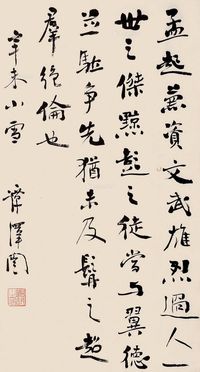 孟起兼資文武雄烈過人一
世之傑黥彭之徒當與翼德
並馳爭先猶未及髯之超
羣絕倫也
辛未小雪
譚澤闓